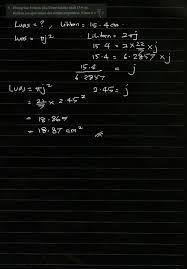 Luas = ?, Lilitan = 15.4 cm.
Luas = πj²
Lilitan = 2πj
15.4 = 2 × 22/7 × j
15.4 = 6.2857 × j
15.4/6.2857 = j
2.45 = j
Luas = πj²
= 22/7 × 2.45²
= 18.867
= 18.87 cm²